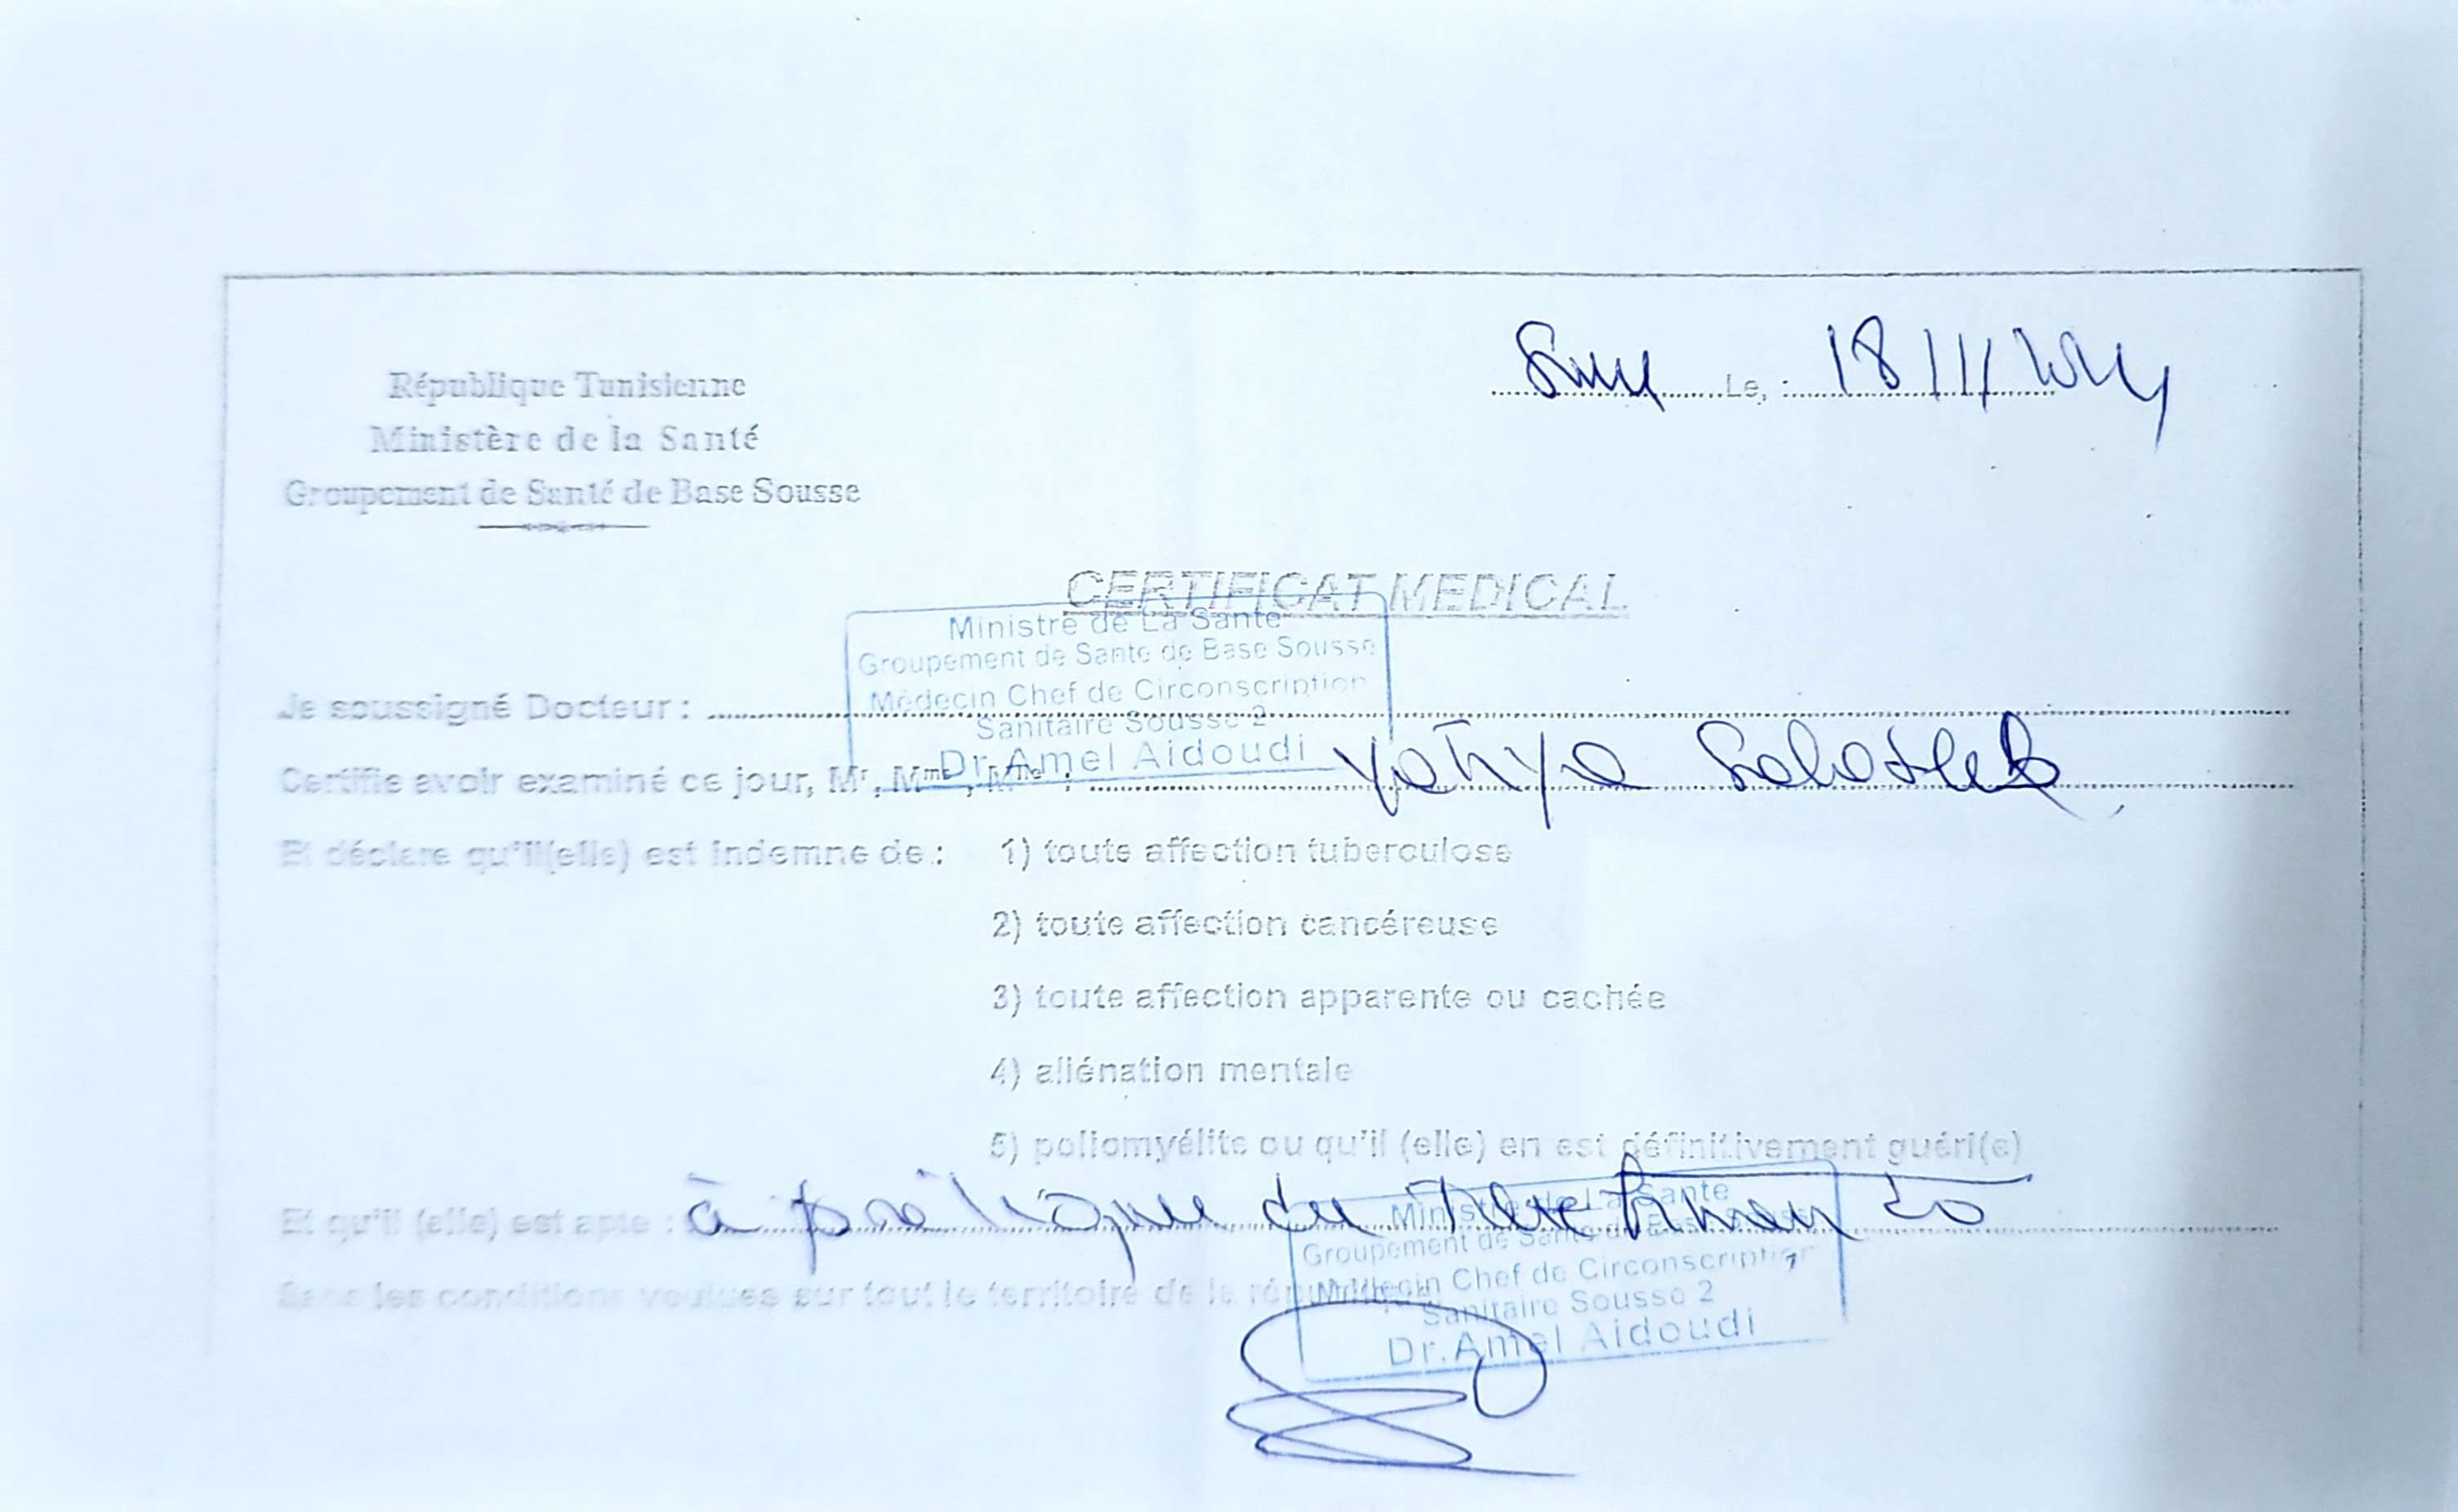 République Tunisienne
Ministère de la Santé
Groupement de Santé de Base Sousse
Le, : 18/11/2024
CERTIFICAT MEDICAL
Ministre de La Sante
Groupement de Sante de Base Sousse
Médecin Chef de Circonscription
Sanitaire Sousse 2
Dr. Amel Aidoudi
Je soussigné Docteur :
Certifie avoir examiné ce jour, Mr, Mme, Mlle : Yahya
Et déclare qu'il(elle) est indemne de : 1) toute affection tuberculose
2) toute affection cancéreuse
3) toute affection apparente ou cachée
4) aliénation mentale
5) poliomyélite ou qu'il (elle) en est définitivement guéri(e)
Et qu'il (elle) est apte : à pratique du
Sans les conditions voulues sur tout le territoire de la république
Ministre de La Sante
Groupement de Sante de Base Sousse
Médecin Chef de Circonscription
Sanitaire Sousse 2
Dr. Amel Aidoudi